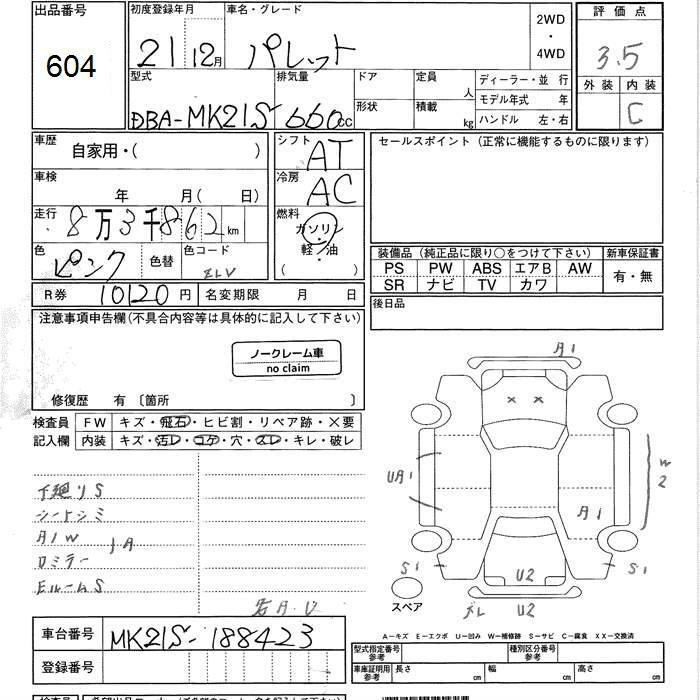 出品番号
604
初度登録年月
21 12月
車名・グレード
パレット
2WD
・
4WD
評価点
3.5
外装 内装
C
型式
DBA-MK21S
排気量
660cc
ドア
形状
定員
人
積載
kg
ディーラー・並行
モデル年式 年
ハンドル 左・右
車歴
自家用・( )
シフト
AT
セールスポイント (正常に機能するものに限ります)
車検
年 月( 日)
冷房
AC
走行
8万3千862km
燃料
ガソリン
・
軽・油
( )
色
ピンク
色替
色コード
ZLV
装備品 (純正品に限り○をつけて下さい)
新車保証書
PS PW ABS エアB AW
SR ナビ TV カワ
有・無
R券 10120円
名変期限 月 日
後日品
注意事項申告欄(不具合内容等は具体的に記入して下さい)
ノークレーム車
no claim
修復歴 有〔箇所 〕
検査員
記入欄
FW キズ・飛石・ヒビ割・リペア跡・×要
内装 キズ・汚レ・コゲ・穴・スレ・キレ・破レ
下廻りS
シートシミ
A1W
ロミラー
EルームS
A1
UA1
W
2
A1
S1
S1
U2
U2
スペア
A-キズ E-エクボ U-凹み W-補修跡 S-サビ C-腐食 XX-交換済
車台番号
MK21S-188423
登録番号
型式指定番号
参考
種別区分番号
参考
車庫証明用
参考
長さ cm
幅 cm
高さ cm